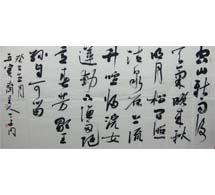 空山新雨後
天氣晚來秋
明月松间照
清泉石上流
竹喧归浣女
蓮動下渔舟
意春芳歇王
孫自可留